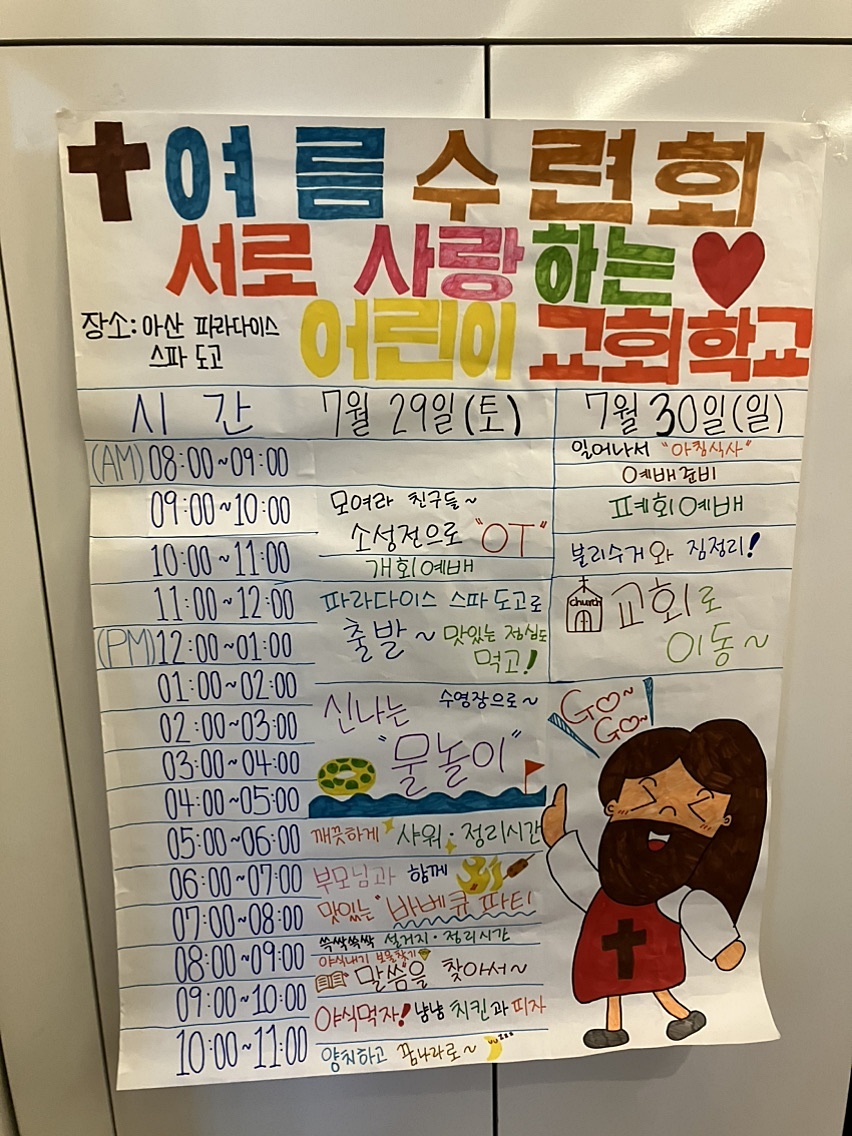 여름수련회
서로 사랑하는
장소: 아산 파라다이스
스파 도고
어린이 교회학교
시간 7월 29일(토) 7월 30일(일)
(AM) 08:00~09:00
일어나서 "아침식사"
예배준비
09:00~10:00
모여라 친구들~
소성전으로 "OT"
폐회예배
10:00~11:00
개회예배
분리수거와 짐정리!
11:00~12:00
파라다이스 스파 도고로
출발~ 맛있는 점심도
먹고!
church
교회로
이동~
(PM) 12:00~01:00
01:00~02:00
신나는 수영장으로~
"물놀이"
GO~
GO~
02:00~03:00
03:00~04:00
04:00~05:00
05:00~06:00
깨끗하게 샤워·정리시간
06:00~07:00
부모님과 함께
맛있는 "바베큐 파티
07:00~08:00
쓱싹쓱싹 설거지·정리시간
08:00~09:00
야식내기 보물찾기
말씀을 찾아서~
09:00~10:00
야식먹자! 냠냠 치킨과 피자
10:00~11:00
양치하고 꿈나라로~
zzz